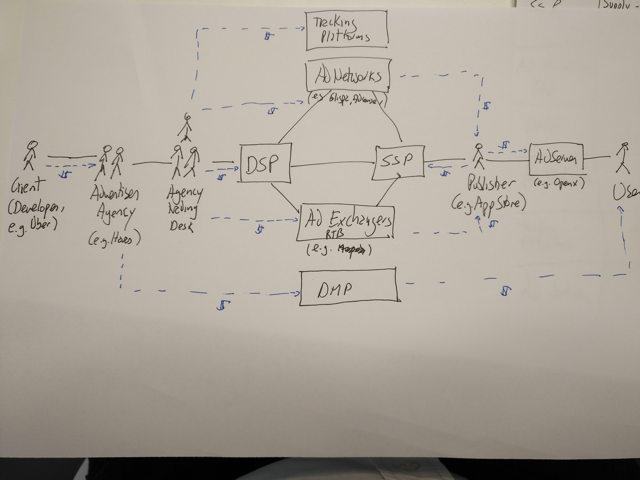 Tracking
Platforms
AD Networks
DSP
SSP
Client
(Developer,
e.g. Uber)
Advertiser
Agency
(e.g. Havas)
Agency
Desk
Publisher
(e.g. App Store)
AD Server
(e.g. OpenX)
User
AD Exchangers
RTB
(e.g. Mopub)
DMP
$
$
$
$
$
$
$
$
$
$
$
$